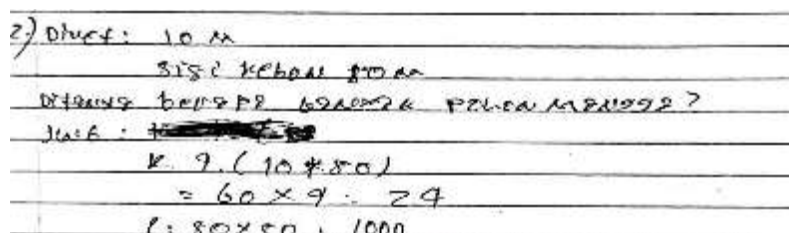 2) Diket : 10 m
sisi kebon 80 m
Ditanya berapa banyak pohon mangga?
Jwb :
k 9. (10 * 80)
= 60 × 9 : 24
l : 80 × 80 : 1000